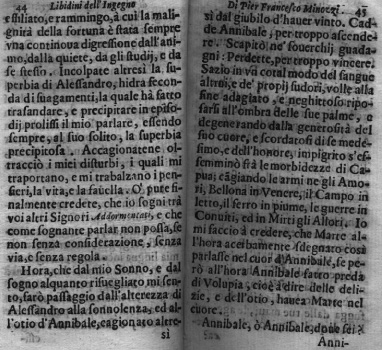 44 Libidini dell'Ingegno
solato, e rammingo, à cui la mali-
gnità della fortuna è stata sempre
vna continoua digressione dall'ani-
mo, dalla quiete, da gli studij, e da
se stesso. Incolpate altresì la su-
perbia di Alessandro, hidra fecon-
da di suagamenti, la quale hà fatto
trasandare, e precipitare in episo-
dij prolissi il mio parlare, essendo
sempre, al suo solito, la superbia
precipitosa. Accagionatene ol-
tracciò i miei disturbi, i quali mi
traportano, e mi trabalzano i pen-
sieri, la vita, e la fauella. O, pute fi-
nalmente credere, che io sogni trà
voi altri Signori Addormentati, e che
come sognante parlar non possa, se
non senza consideratione, senza
via, e senza regola.
Hora, che dal mio Sonno, e dal
sogno alquanto risuegliato mi sen-
to, farò passaggio dall'alterezza di
Alessandro alla sonnolenza, ed al-
l'otio d'Annibale, cagionato altre-
si
Di Pier Francesco Minozzi 45
sì dal giubilo d'hauer vinto. Cad-
de Annibale, per troppo ascende-
re. Scapitò ne' souerchij guada-
gni: Perdette, per troppo vincere.
Sazio in vn cotal modo del sangue
altrui, e de' proprj sudori, volle alla
fine adagiato, e neghittoso ripo-
sarsi all'ombra delle sue palme, e
degenerando dalla generosità del
suo cuore, e scordatosi di se mede-
simo, e dell'honore, impigrito s'ef-
femminò frà le morbidezze di Ca-
pua; cãgiando le armi ne gli Amo-
ri, Bellona in Venere, il Campo in
letto, il ferro in piume, le guerre in
Conuiti, ed in Mirti gli Allori. Io
mi faccio à credere, che Marte al-
l'hora acerbamente sdegnato così
parlasse nel cuor d'Annibale, se pe-
rò all'hora Annibale fatto preda
di Volupia, cioè à dire delle deli-
zie, e dell'otio, hauea Marte nel
cuore.
Annibale, ò Annibale, dpue sei?
Anni-